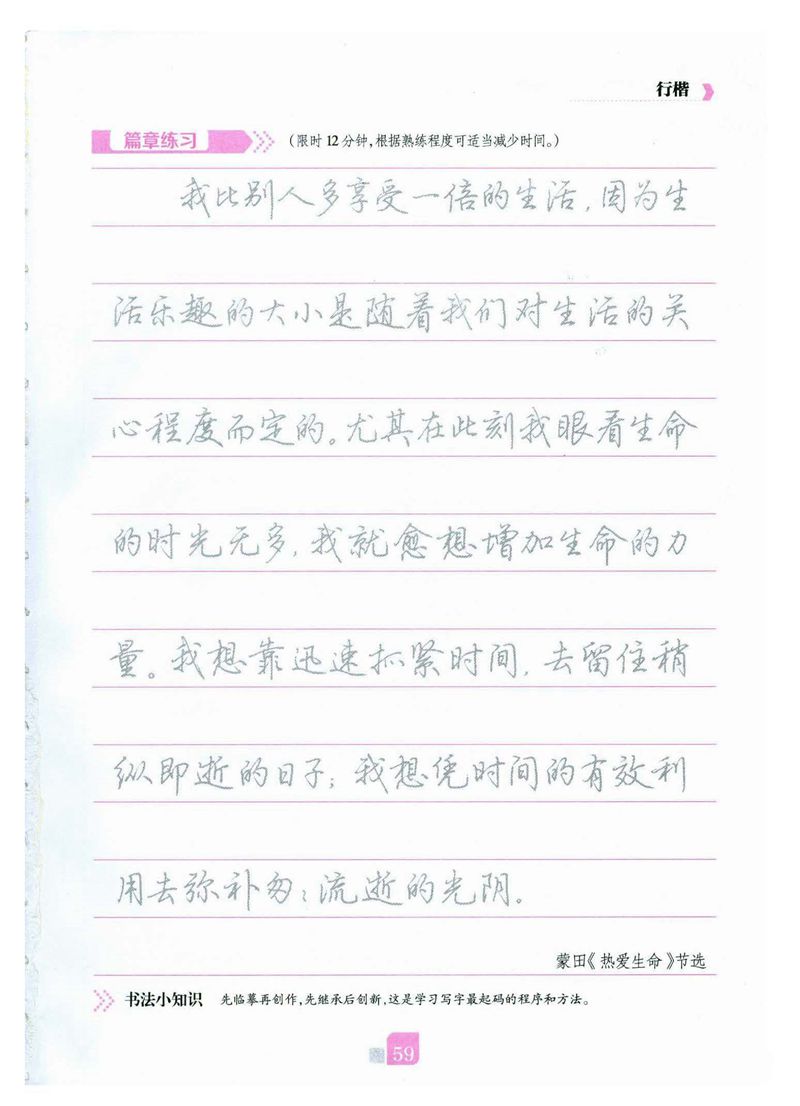 行楷
篇章练习 (限时12分钟,根据熟练程度可适当减少时间。)
我比别人多享受一倍的生活,因为生
活乐趣的大小是随着我们对生活的关
心程度而定的。尤其在此刻我眼看生命
的时光无多,我就愈想增加生命的力
量。我想靠迅速抓紧时间,去留住稍
纵即逝的日子;我想凭时间的有效利
用去弥补匆匆流逝的光阴。
蒙田《热爱生命》节选
书法小知识 先临摹再创作,先继承后创新,这是学习写字最起码的程序和方法。
59